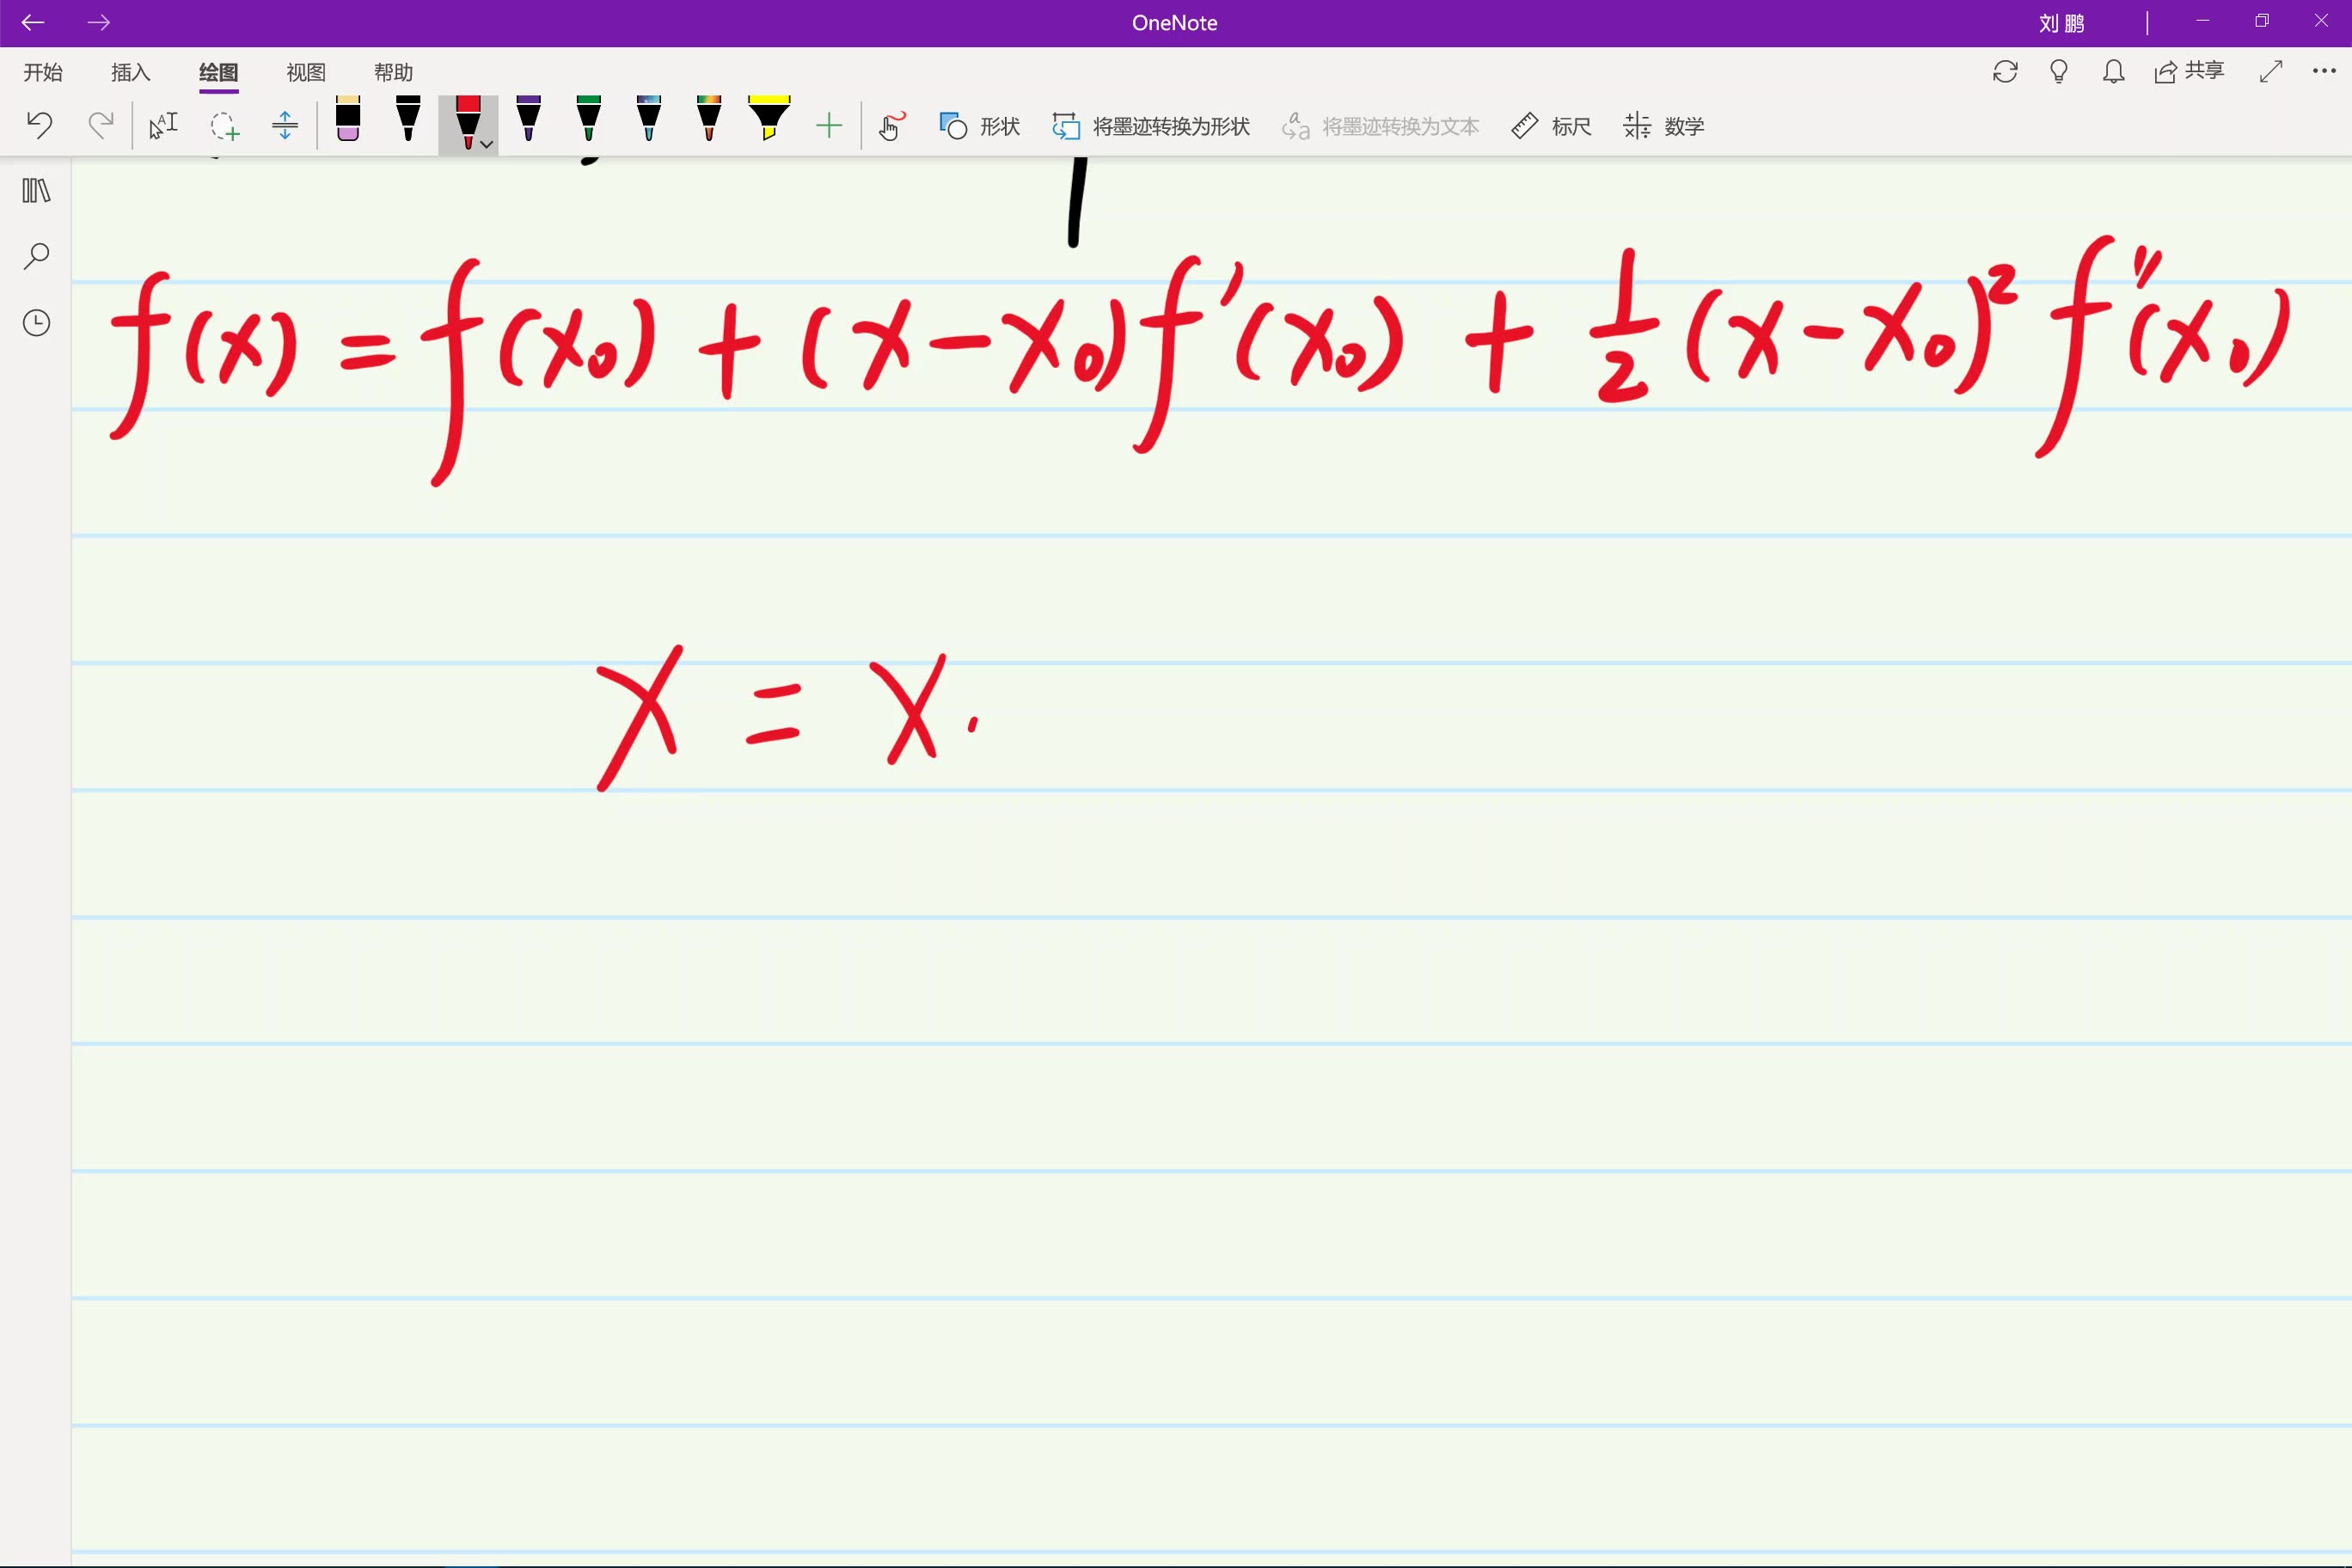 OneNote 刘 鹏
开始 插入 绘图 视图 帮助 共享
形状 将墨迹转换为形状 将墨迹转换为文本 标尺 数学
f(x) = f(x₀) + (x-x₀)f'(x₀) + ½(x-x₀)² f''(x₀)
x = x.